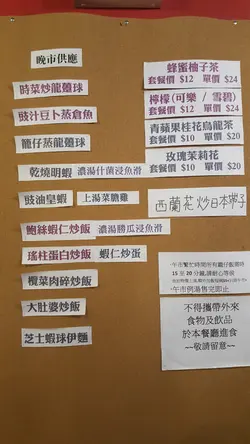 晚市供應
時菜炒龍躉球
豉汁豆卜蒸倉魚
籠仔蒸龍躉球
乾燒明蝦 濃湯什菌浸魚滑
豉油皇蝦 上湯菜膽雞
鮑絲蝦仁炒飯 濃湯勝瓜浸魚滑
瑤柱蛋白炒飯 蝦仁炒蛋
欖菜肉碎炒飯
大肚婆炒飯
芝士蝦球伊麵
蜂蜜柚子茶
套餐價 $12 單價 $24
檸檬(可樂 / 雪碧)
套餐價 $12 單價 $24
青蘋果桂花烏龍茶
套餐價 $10 單價 $20
玫瑰茉莉花
套餐價 $10 單價 $20
西蘭花炒日本帶子
15 至 20 分鐘,請耐心等候
午市例湯售完即止
不得攜帶外來
食物及飲品
於本餐廳進食
~~敬請留意~~